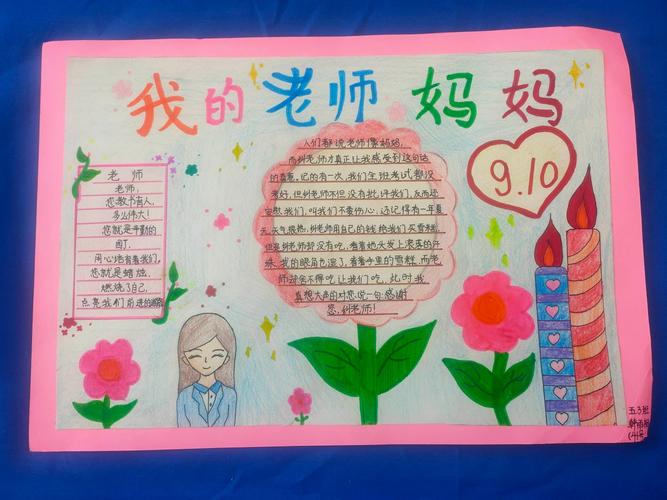 我的老师妈妈
老师
老师,
您教书育人,
多么伟大!
您就是辛勤的
园丁,
用心培育着我们,
您就是蜡烛,
燃烧了自己,
点亮我们前进的道路
人们都说,老师像妈妈,
而刘老师才真正让我感受到这句话
的真意。记的有一次,我们全班考试都没
考好,但刘老师不但没有批评我们,反而还
安慰我们,叫我们不要伤心。还记得有一年夏
天,天气很热,刘老师用自己的钱给我们买雪糕,
但是刘老师却没有吃,看着她头发上滚落的汗
珠,我的眼角湿了,看着手里的雪糕,而老
师却舍不得吃,让我们吃,此时我
真想大声的对您说一句:感谢
您,刘老师!
9.10
五.3班